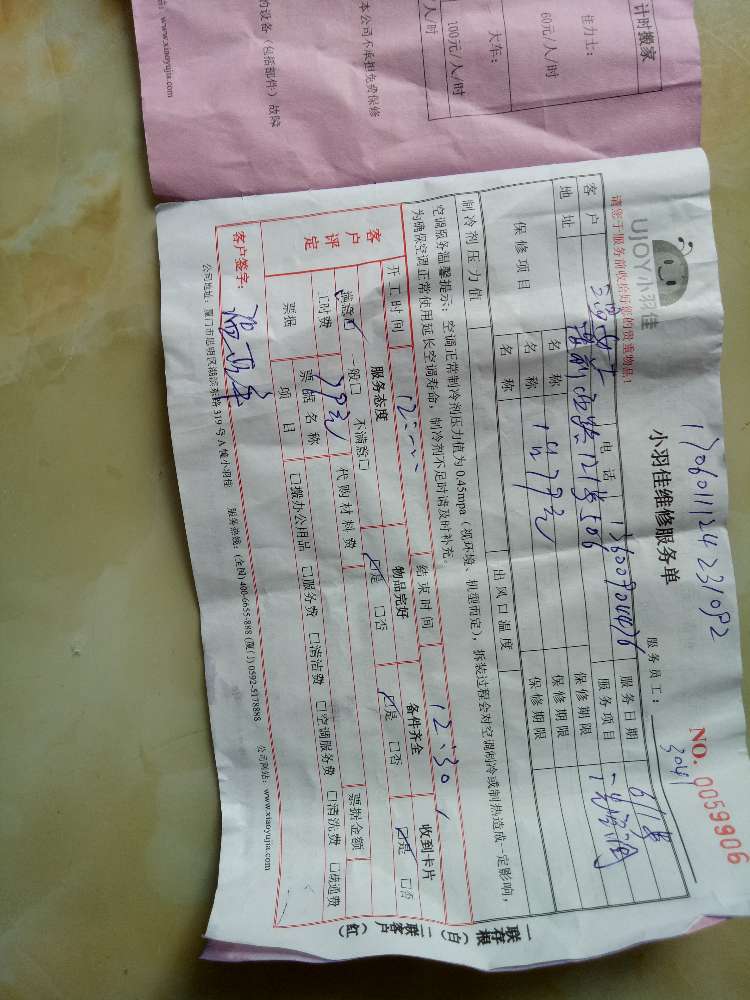 计时搬家
佳力士：
60元/人/时
大车：
100元/人/时
人/时
本公司不承担免费保修
的设备（包括部件）故障
www.xiaoyujia.com
UJOY小羽佳
请您于服务前收拾好您的贵重物品！
170601124231092
小羽佳维修服务单
NO. 0059906
服务员工：
3041
客户
电话
服务日期
地址
服务项目
保修项目
名称
保修期限
名称
1状79元
保修期限
名称
保修期限
制冷剂压力值
出风口温度
空调服务温馨提示：空调正常制冷剂压力值为0.45mpa（视环境、机型而定），拆装过程会对空调制冷或制热造成一定影响，
为确保空调正常使用延长空调寿命，制冷剂不足时请及时补充。
开工时间
12:00
结束时间
12:30
客户评定
服务态度
物品完好
备件齐全
收到卡片
满意 一般□ 不满意□
是 □否
是 □否
是 □否
工时费
79元
代购材料费
票据金额
票据
票据名称
项目
□搬办公用品 □服务费 □清洁费 □空调服务费 □清洗费 □疏通费
客户签字：
公司地址：厦门市思明区湖滨东路319号A栋小羽佳 服务热线：(全国) 400-6655-888 (厦门) 0592-5178888 公司网站：www.xiaoyujia.com
一联存根（白）二联客户（红）